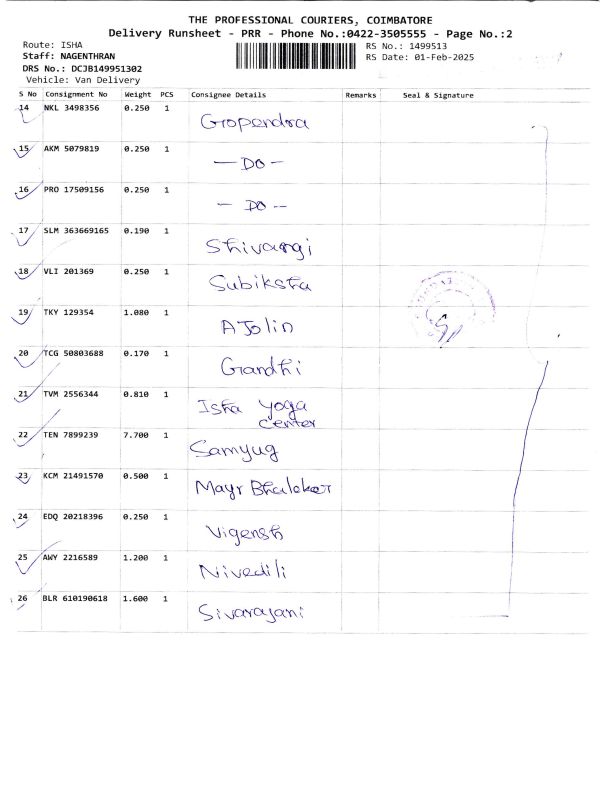 THE PROFESSIONAL COURIERS, COIMBATORE
Delivery Runsheet - PRR - Phone No.:0422-3505555 - Page No.:2
Route: ISHA
RS No.: 1499513
Staff: NAGENTHRAN
RS Date: 01-Feb-2025
DRS No.: DCJB149951302
Vehicle: Van Delivery
S No Consignment No Weight PCS Consignee Details Remarks Seal & Signature
14 NKL 3498356 0.250 1 Gropendra
15 AKM 5079819 0.250 1 — DO —
16 PRO 17509156 0.250 1 — DO --
17 SLM 363669165 0.190 1 Shivangi
18 VLI 201369 0.250 1 Subiksha
19 TKY 129354 1.080 1 AJolin
20 TCG 50803688 0.170 1 Gandhi
21 TVM 2556344 0.810 1 Isha Yoga
center
22 TEN 7899239 7.700 1 Samyug
23 KCM 21491570 0.500 1 Mayr Bhalekar
24 EDQ 20218396 0.250 1 Vigensh
25 AWY 2216589 1.200 1 Nivedili
26 BLR 610190618 1.600 1 Sivarajani